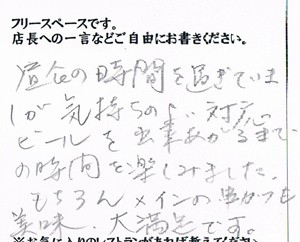 フリースペースです。
店長への一言などご自由にお書きください。
昼食の時間を過ぎていま
しが気持ちのよい対応。
ビールを出来あがるまで
の時間を楽しみました。
もちろんメインの串かつも
美味、大満足です。
※お気に入りのレストランがあれば教えてください